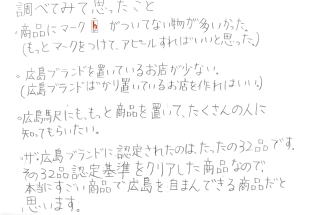 調べてみて思ったこと
・商品にマークhがついてない物が多いかった。
(もっとマークをつけて、アピールすればいいと思った。)
・広島ブランドを置いているお店が少ない。
(広島ブランドばかり置いているお店を作ればいい。)
・広島駅にも、もっと商品を置いて、たくさんの人に
知ってもらいたい。
・ザ・広島ブランドに認定されたのは、たったの32品です。
その32品認定基準をクリアした商品なので、
本当にすごい商品で広島を自まんできる商品だと
思います。